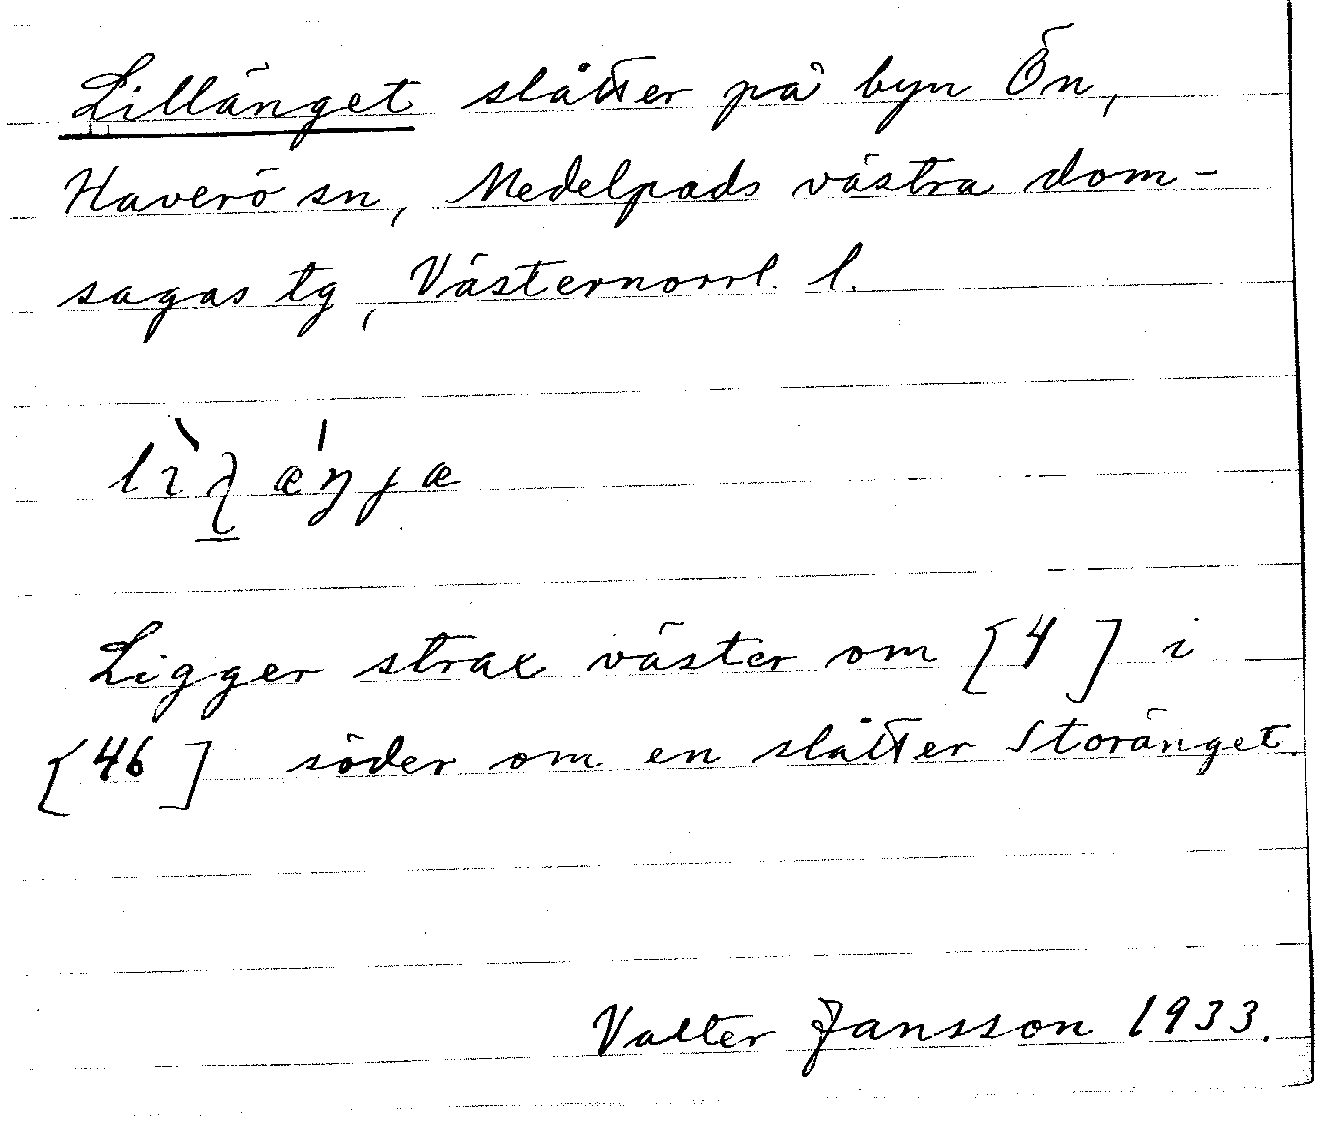 Lillänget slåtter på byn Ön,
Haverö sn, Medelpads västra dom-
sagas tg, Västernorrl. l.
Ligger strax väster om [4] i
[46] söder om en slåtter Storänget.
Valter Jansson 1933.